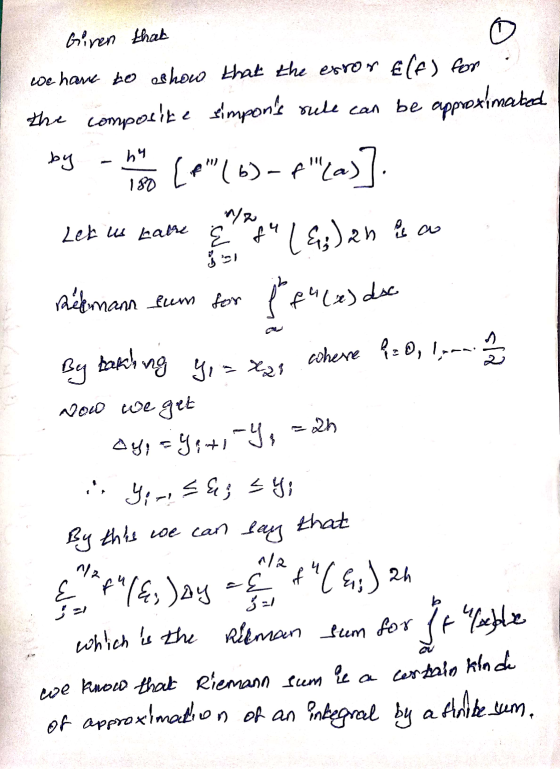 Given that ①
we have to ashow that the error E(f) for
the composite simpon's rule can be approximated
by - h⁴/180 [f'''(b) - f'''(a)].
Let us take Σ_{j=1}^{n/2} f⁴(ξ_j)2h is a
Riemann sum for ∫_a^b f⁴(x) dx
By taking y_i = x_{2i} where i=0, 1,---- n/2
Now we get
Δy_i = y_{i+1} - y_i = 2h
∴ y_{i-1} ≤ ξ_j ≤ y_i
By this we can say that
Σ_{j=1}^{n/2} f⁴(ξ_j)Δy = Σ_{j=1}^{n/2} f⁴(ξ_j) 2h
which is the Rieman sum for ∫_a^b f⁴(x)dx
we know that Riemann sum is a certain kind
of approximation of an integral by a finite sum.